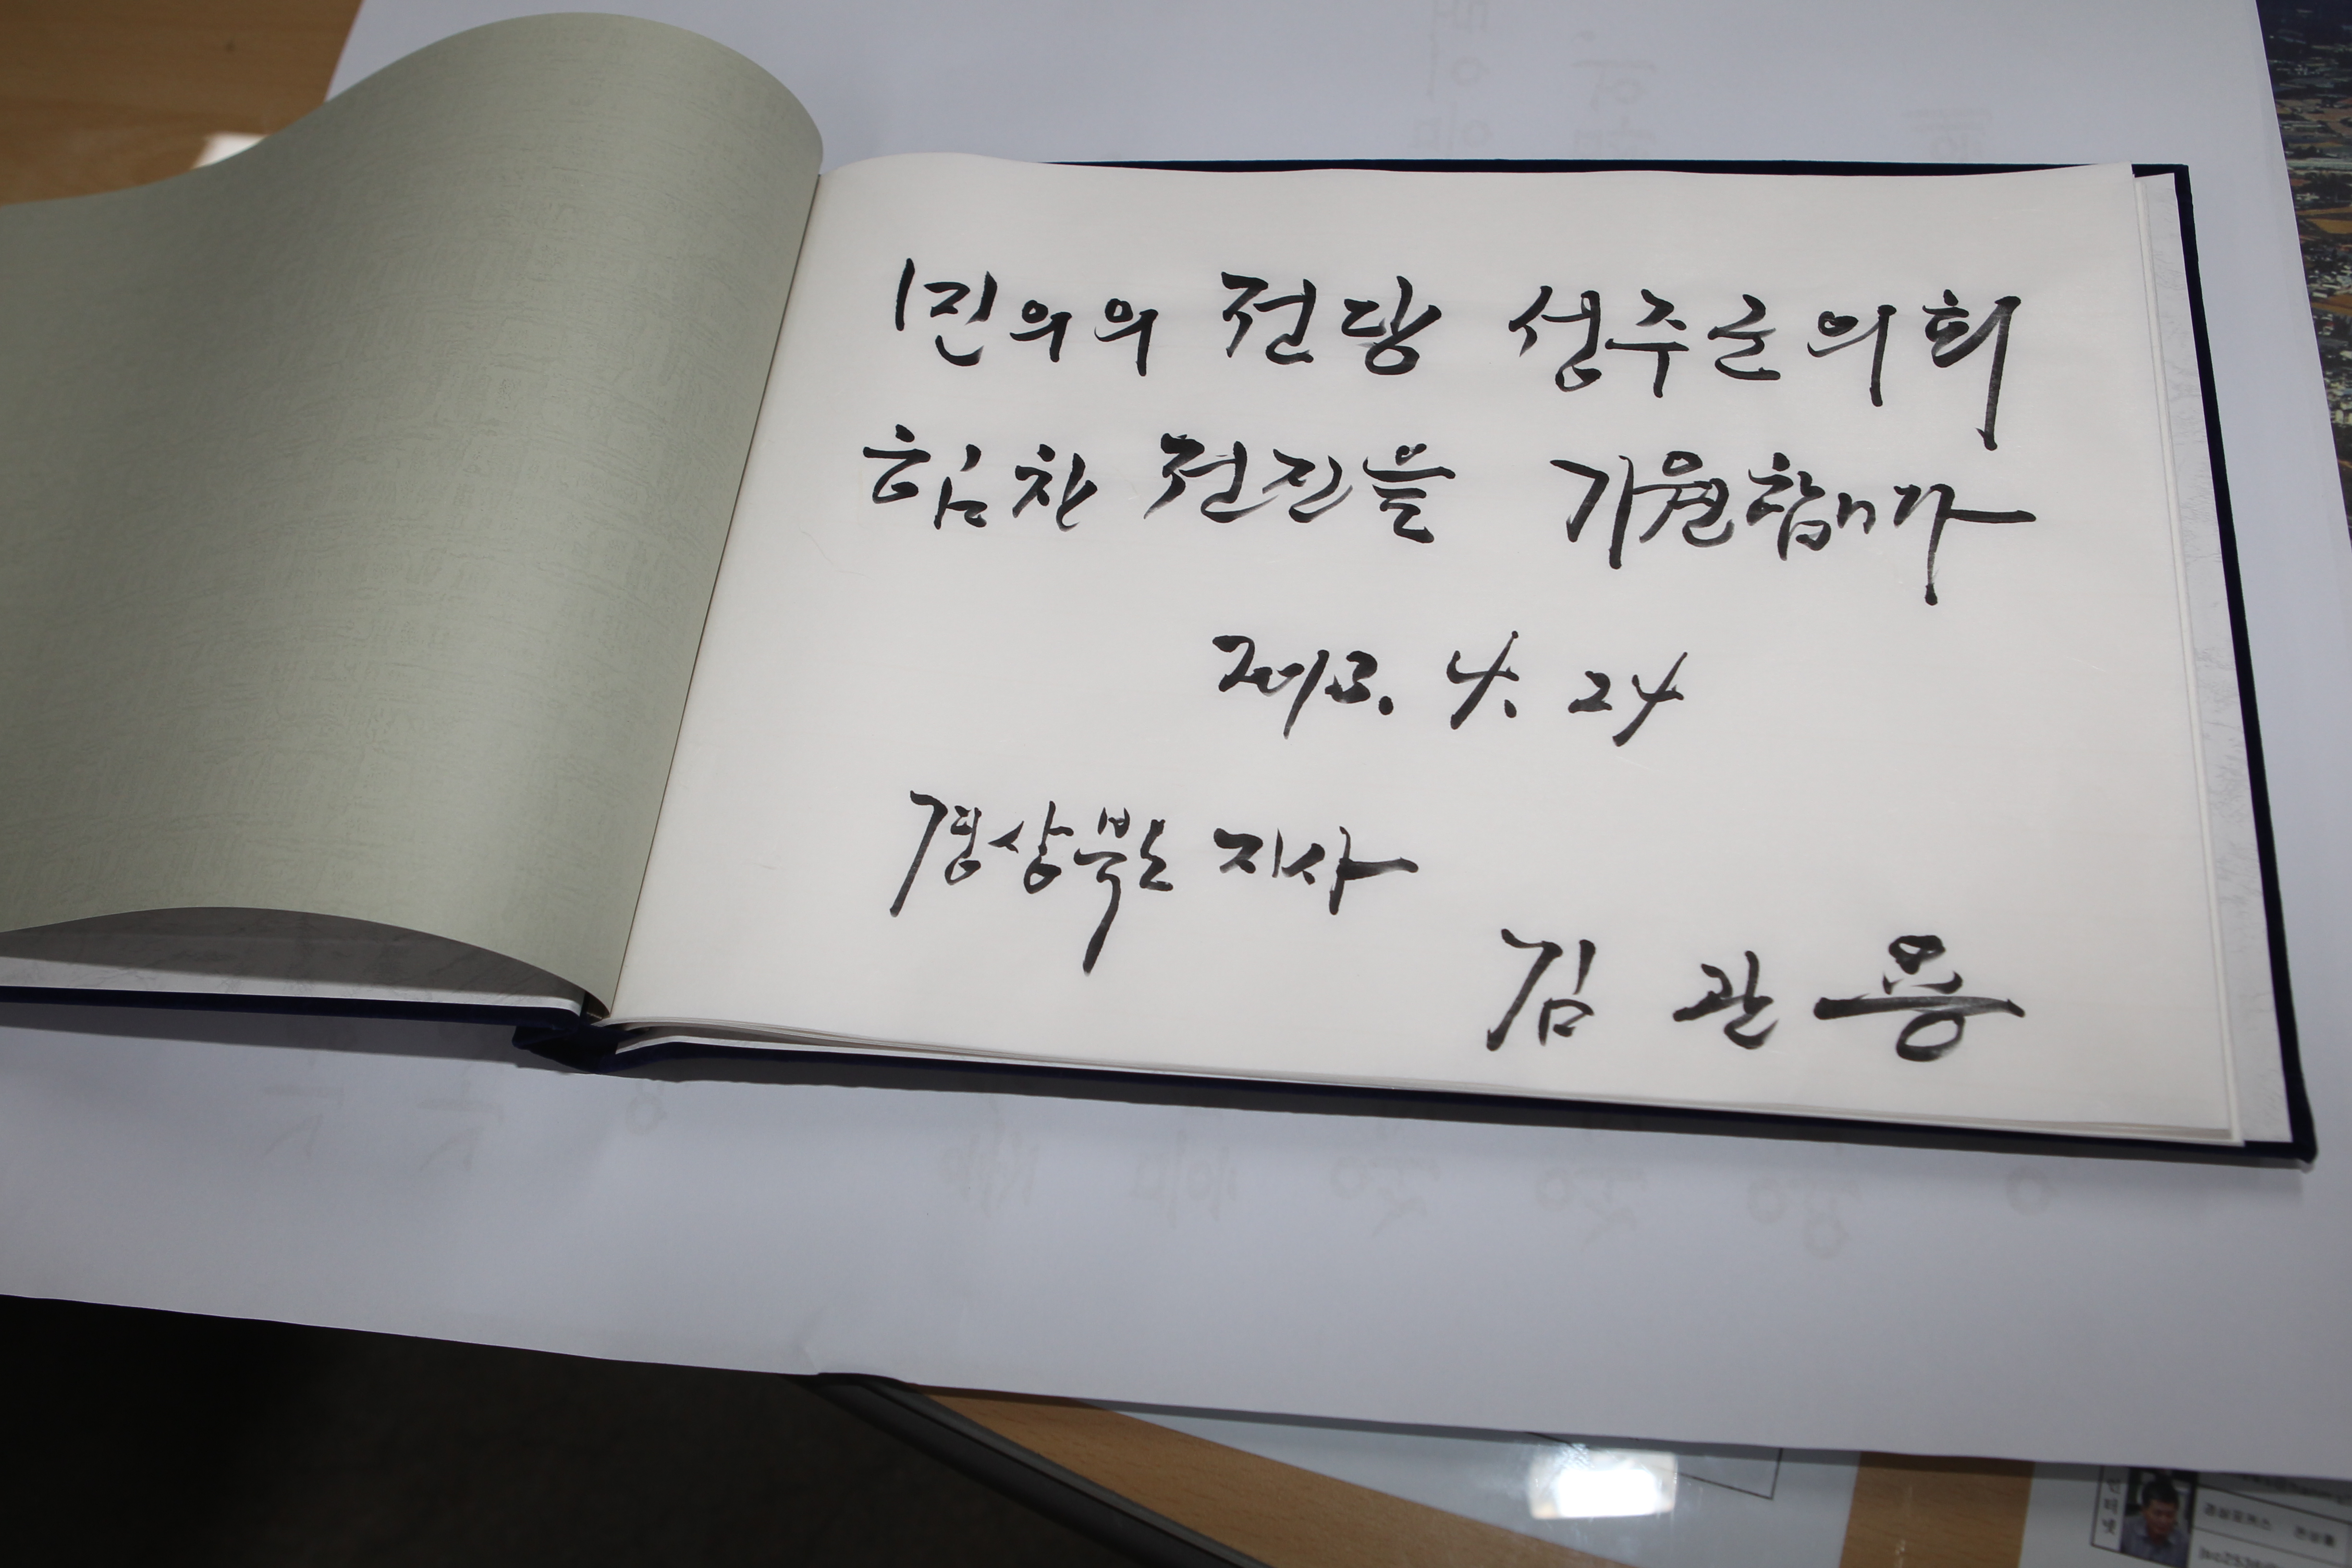 민의의 전당 성주군의회
힘찬 전진을 기원합니다
2013. 4. 24
경상북도 지사
김 관 용